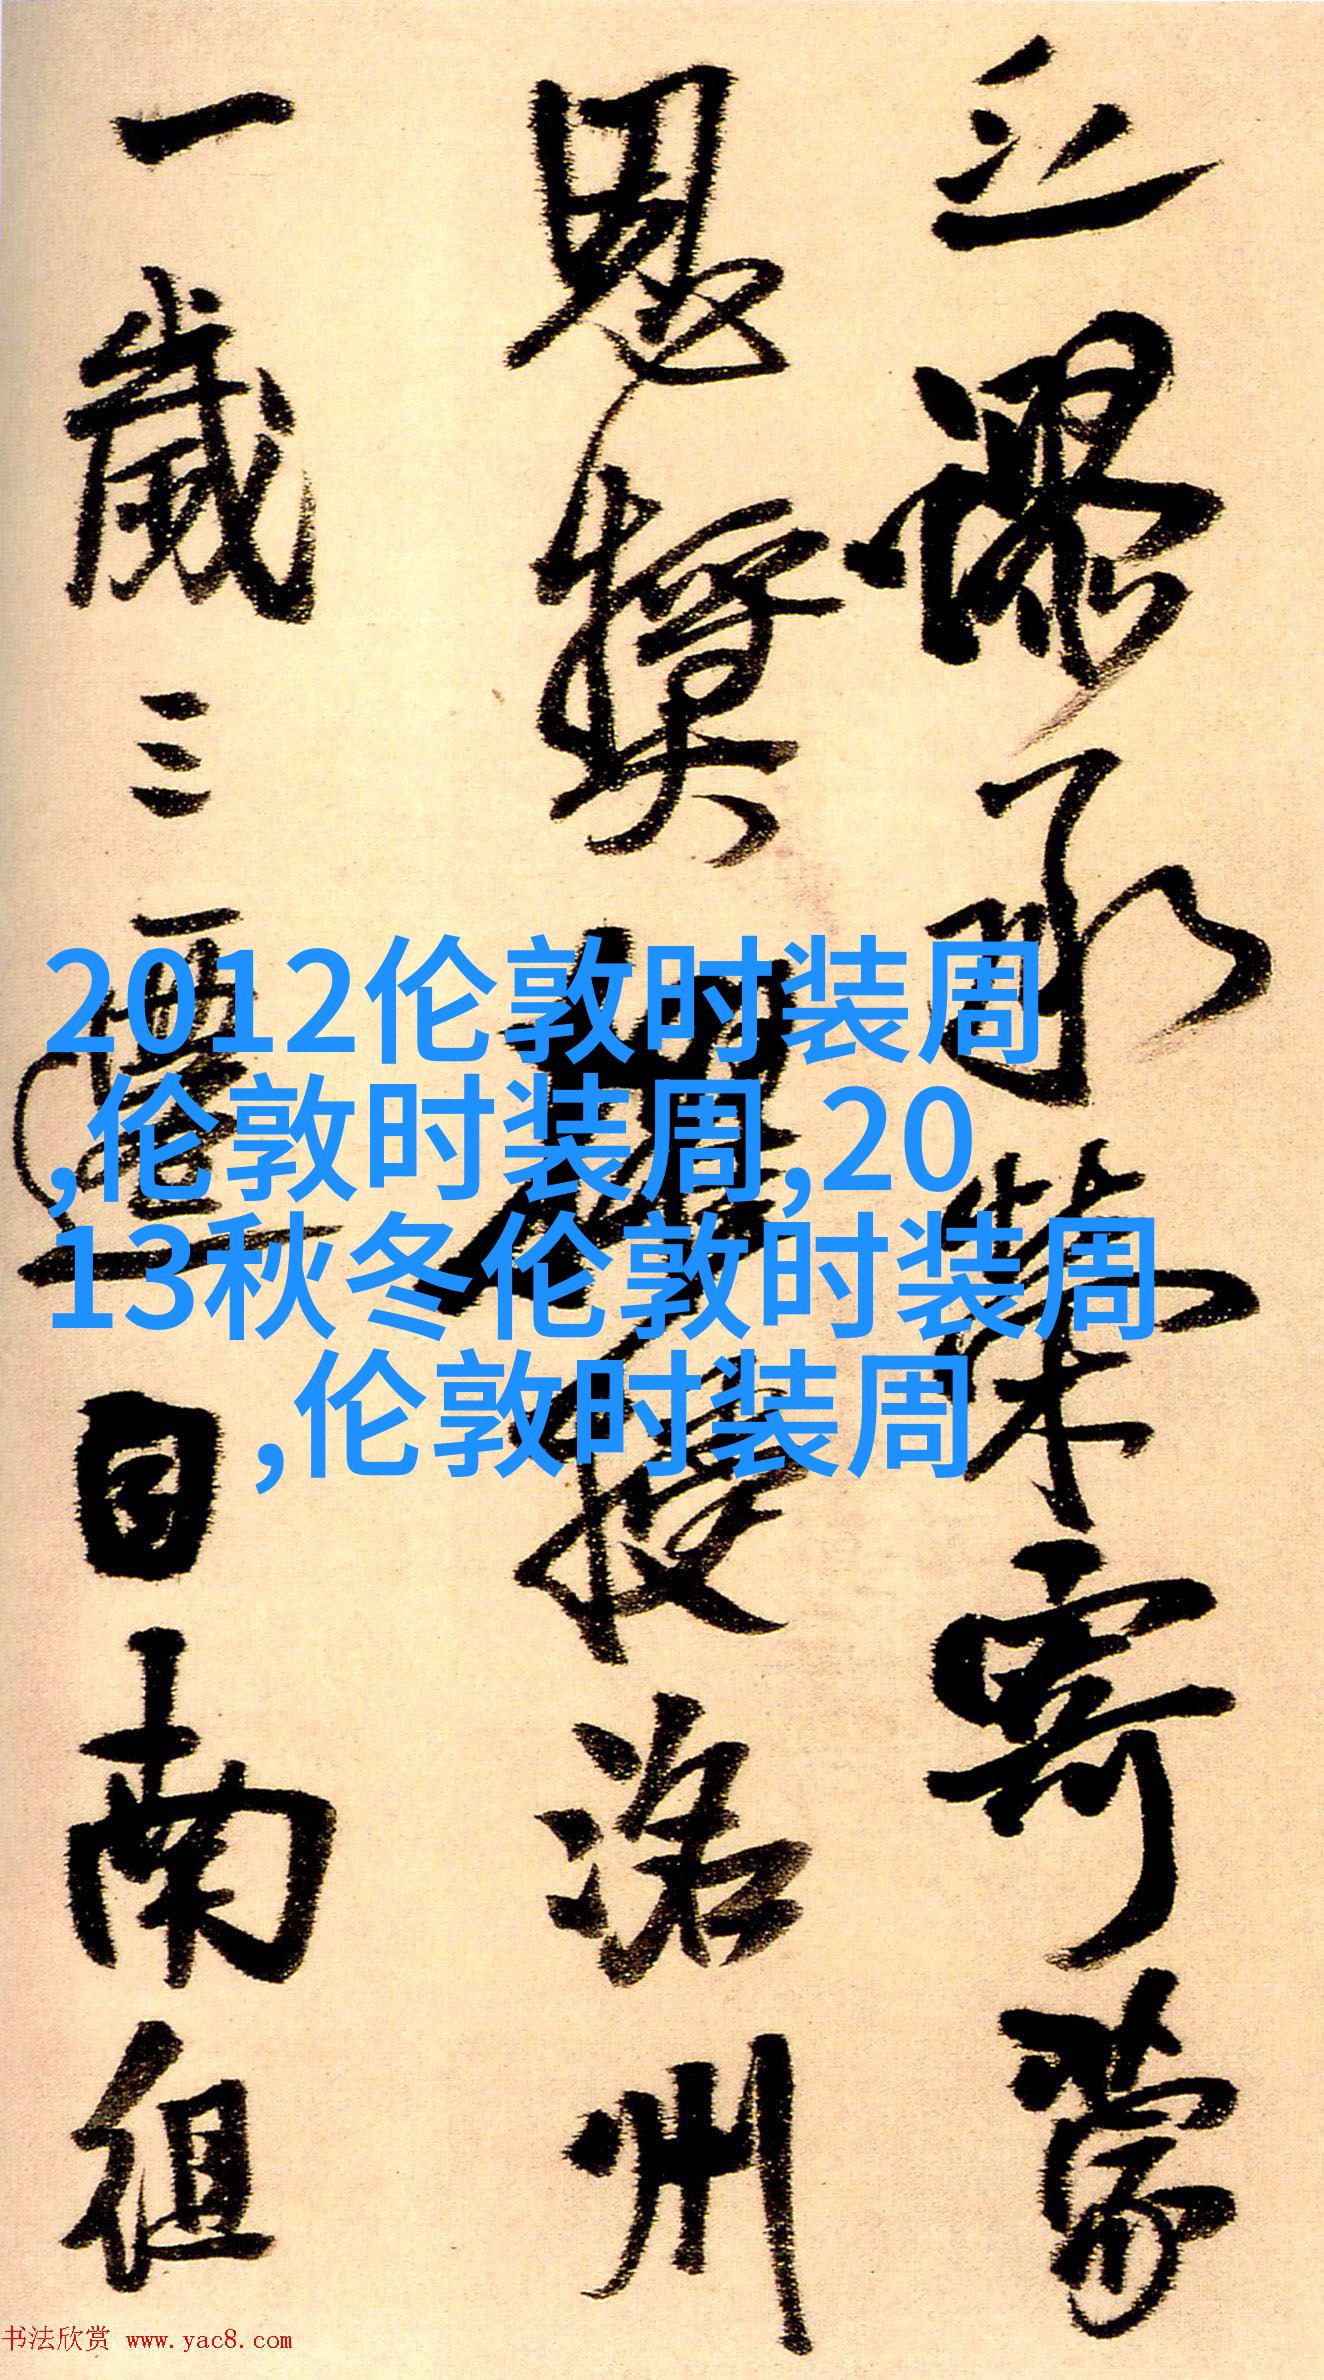 謬承榮寄蒙
恩獎擢授洛州
一歲三遷自南徂
2012伦敦时装周
,伦敦时装周,20
13秋冬伦敦时装周
,伦敦时装周
书法欣赏 www.yac8.com